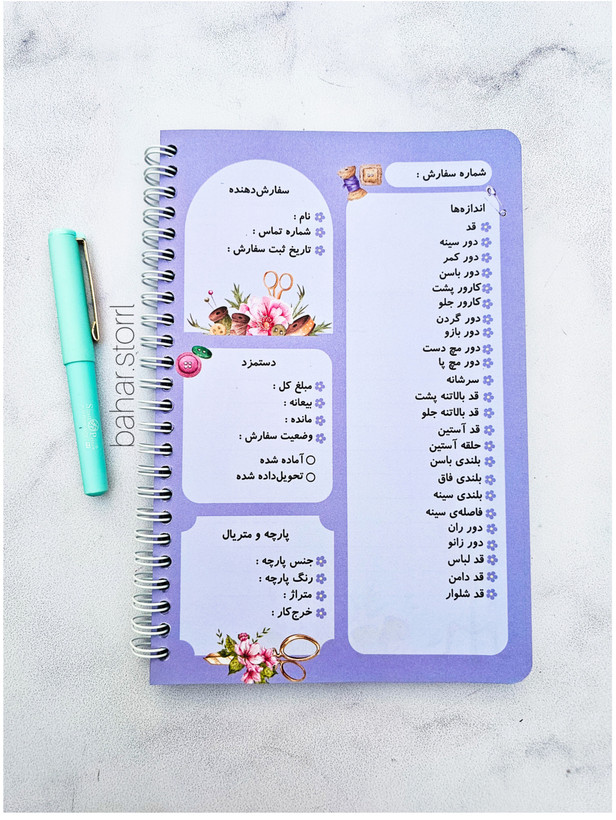 شماره سفارش :
اندازه‌ها
قد
دور سینه
دور کمر
دور باسن
کارور پشت
کارور جلو
دور گردن
دور بازو
دور مچ دست
دور مچ پا
سرشانه
قد بالاتنه پشت
قد بالاتنه جلو
قد آستین
حلقه آستین
بلندی باسن
بلندی فاق
بلندی سینه
فاصله‌ی سینه
دور ران
دور زانو
قد لباس
قد دامن
قد شلوار
سفارش‌دهنده
نام :
شماره تماس :
تاریخ ثبت سفارش :
دستمزد
مبلغ کل :
بیعانه :
مانده :
وضعیت سفارش :
آماده شده
تحویل‌داده شده
پارچه و متریال
جنس پارچه :
رنگ پارچه :
متراژ :
خرج‌کار :
bahar.storrl